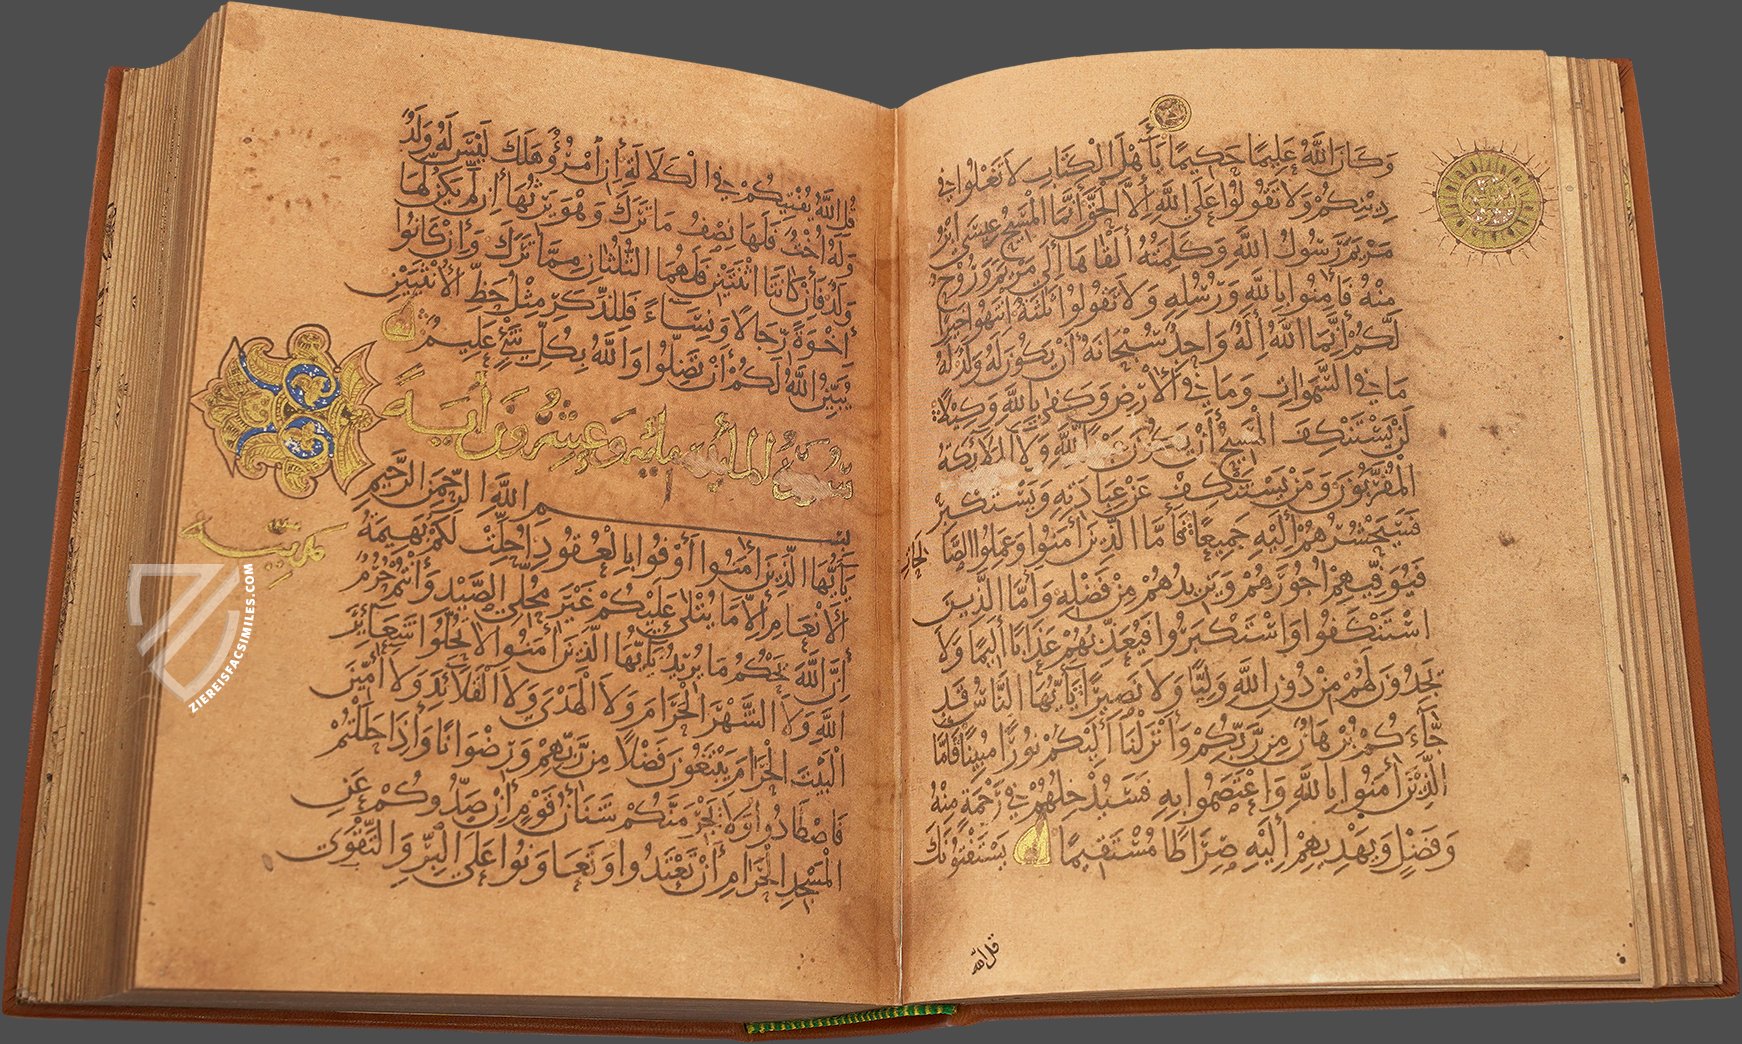 وَكَانَ اللَّهُ عَلِيمًا حَكِيمًا يَا أَهْلَ الْكِتَابِ لَا تَغْلُوا فِي
دِينِكُمْ وَلَا تَقُولُوا عَلَى اللَّهِ إِلَّا الْحَقَّ إِنَّمَا الْمَسِيحُ عِيسَى ابْنُ
مَرْيَمَ رَسُولُ اللَّهِ وَكَلِمَتُهُ أَلْقَاهَا إِلَى مَرْيَمَ وَرُوحٌ
مِنْهُ فَآمِنُوا بِاللَّهِ وَرُسُلِهِ وَلَا تَقُولُوا ثَلٰثَةٌ انْتَهُوا خَيْرًا
لَكُمْ إِنَّمَا اللَّهُ إِلَهٌ وَاحِدٌ سُبْحَانَهُ أَنْ يَكُونَ لَهُ وَلَدٌ لَهُ
مَا فِي السَّمٰوَاتِ وَمَا فِي الْأَرْضِ وَكَفَى بِاللَّهِ وَكِيلًا
لَنْ يَسْتَنْكِفَ الْمَسِيحُ أَنْ يَكُونَ عَبْدًا لِلَّهِ وَلَا الْمَلَائِكَةُ
الْمُقَرَّبُونَ وَمَنْ يَسْتَنْكِفْ عَنْ عِبَادَتِهِ وَيَسْتَكْبِرْ
فَسَيَحْشُرُهُمْ إِلَيْهِ جَمِيعًا فَأَمَّا الَّذِينَ آمَنُوا وَعَمِلُوا الصَّالِحَاتِ
فَيُوَفِّيهِمْ أُجُورَهُمْ وَيَزِيدُهُمْ مِنْ فَضْلِهِ وَأَمَّا الَّذِينَ
اسْتَنْكَفُوا وَاسْتَكْبَرُوا فَيُعَذِّبُهُمْ عَذَابًا أَلِيمًا وَلَا
يَجِدُونَ لَهُمْ مِنْ دُونِ اللَّهِ وَلِيًّا وَلَا نَصِيرًا يَا أَيُّهَا النَّاسُ قَدْ
جَاءَكُمْ بُرْهَانٌ مِنْ رَبِّكُمْ وَأَنْزَلْنَا إِلَيْكُمْ نُورًا مُبِينًا فَأَمَّا
الَّذِينَ آمَنُوا بِاللَّهِ وَاعْتَصَمُوا بِهِ فَسَيُدْخِلُهُمْ فِي رَحْمَةٍ مِنْهُ
وَفَضْلٍ وَيَهْدِيهِمْ إِلَيْهِ صِرَاطًا مُسْتَقِيمًا يَسْتَفْتُونَكَ
قل الله
قُلِ اللَّهُ يُفْتِيكُمْ فِي الْكَلَالَةِ إِنِ امْرُؤٌ هَلَكَ لَيْسَ لَهُ وَلَدٌ
وَلَهُ أُخْتٌ فَلَهَا نِصْفُ مَا تَرَكَ وَهُوَ يَرِثُهَا إِنْ لَمْ يَكُنْ لَهَا
وَلَدٌ فَإِنْ كَانَتَا اثْنَتَيْنِ فَلَهُمَا الثُّلُثَانِ مِمَّا تَرَكَ وَإِنْ كَانُوا
إِخْوَةً رِجَالًا وَنِسَاءً فَلِلذَّكَرِ مِثْلُ حَظِّ الْأُنْثَيَيْنِ
يُبَيِّنُ اللَّهُ لَكُمْ أَنْ تَضِلُّوا وَاللَّهُ بِكُلِّ شَيْءٍ عَلِيمٌ
سُورَةُ الْمَائِدَةِ مِائَة وَعِشْرُونَ آيَة
بِسْمِ اللَّهِ الرَّحْمَنِ الرَّحِيمِ
مدنية
يَا أَيُّهَا الَّذِينَ آمَنُوا أَوْفُوا بِالْعُقُودِ أُحِلَّتْ لَكُمْ بَهِيمَةُ
الْأَنْعَامِ إِلَّا مَا يُتْلَى عَلَيْكُمْ غَيْرَ مُحِلِّي الصَّيْدِ وَأَنْتُمْ حُرُمٌ
إِنَّ اللَّهَ يَحْكُمُ مَا يُرِيدُ يَا أَيُّهَا الَّذِينَ آمَنُوا لَا تُحِلُّوا شَعَائِرَ
اللَّهِ وَلَا الشَّهْرَ الْحَرَامَ وَلَا الْهَدْيَ وَلَا الْقَلَائِدَ وَلَا آمِّينَ
الْبَيْتَ الْحَرَامَ يَبْتَغُونَ فَضْلًا مِنْ رَبِّهِمْ وَرِضْوَانًا وَإِذَا حَلَلْتُمْ
فَاصْطَادُوا وَلَا يَجْرِمَنَّكُمْ شَنَآنُ قَوْمٍ أَنْ صَدُّوكُمْ عَنِ
الْمَسْجِدِ الْحَرَامِ أَنْ تَعْتَدُوا وَتَعَاوَنُوا عَلَى الْبِرِّ وَالتَّقْوَى
ZIEREISFACSIMILES.COM